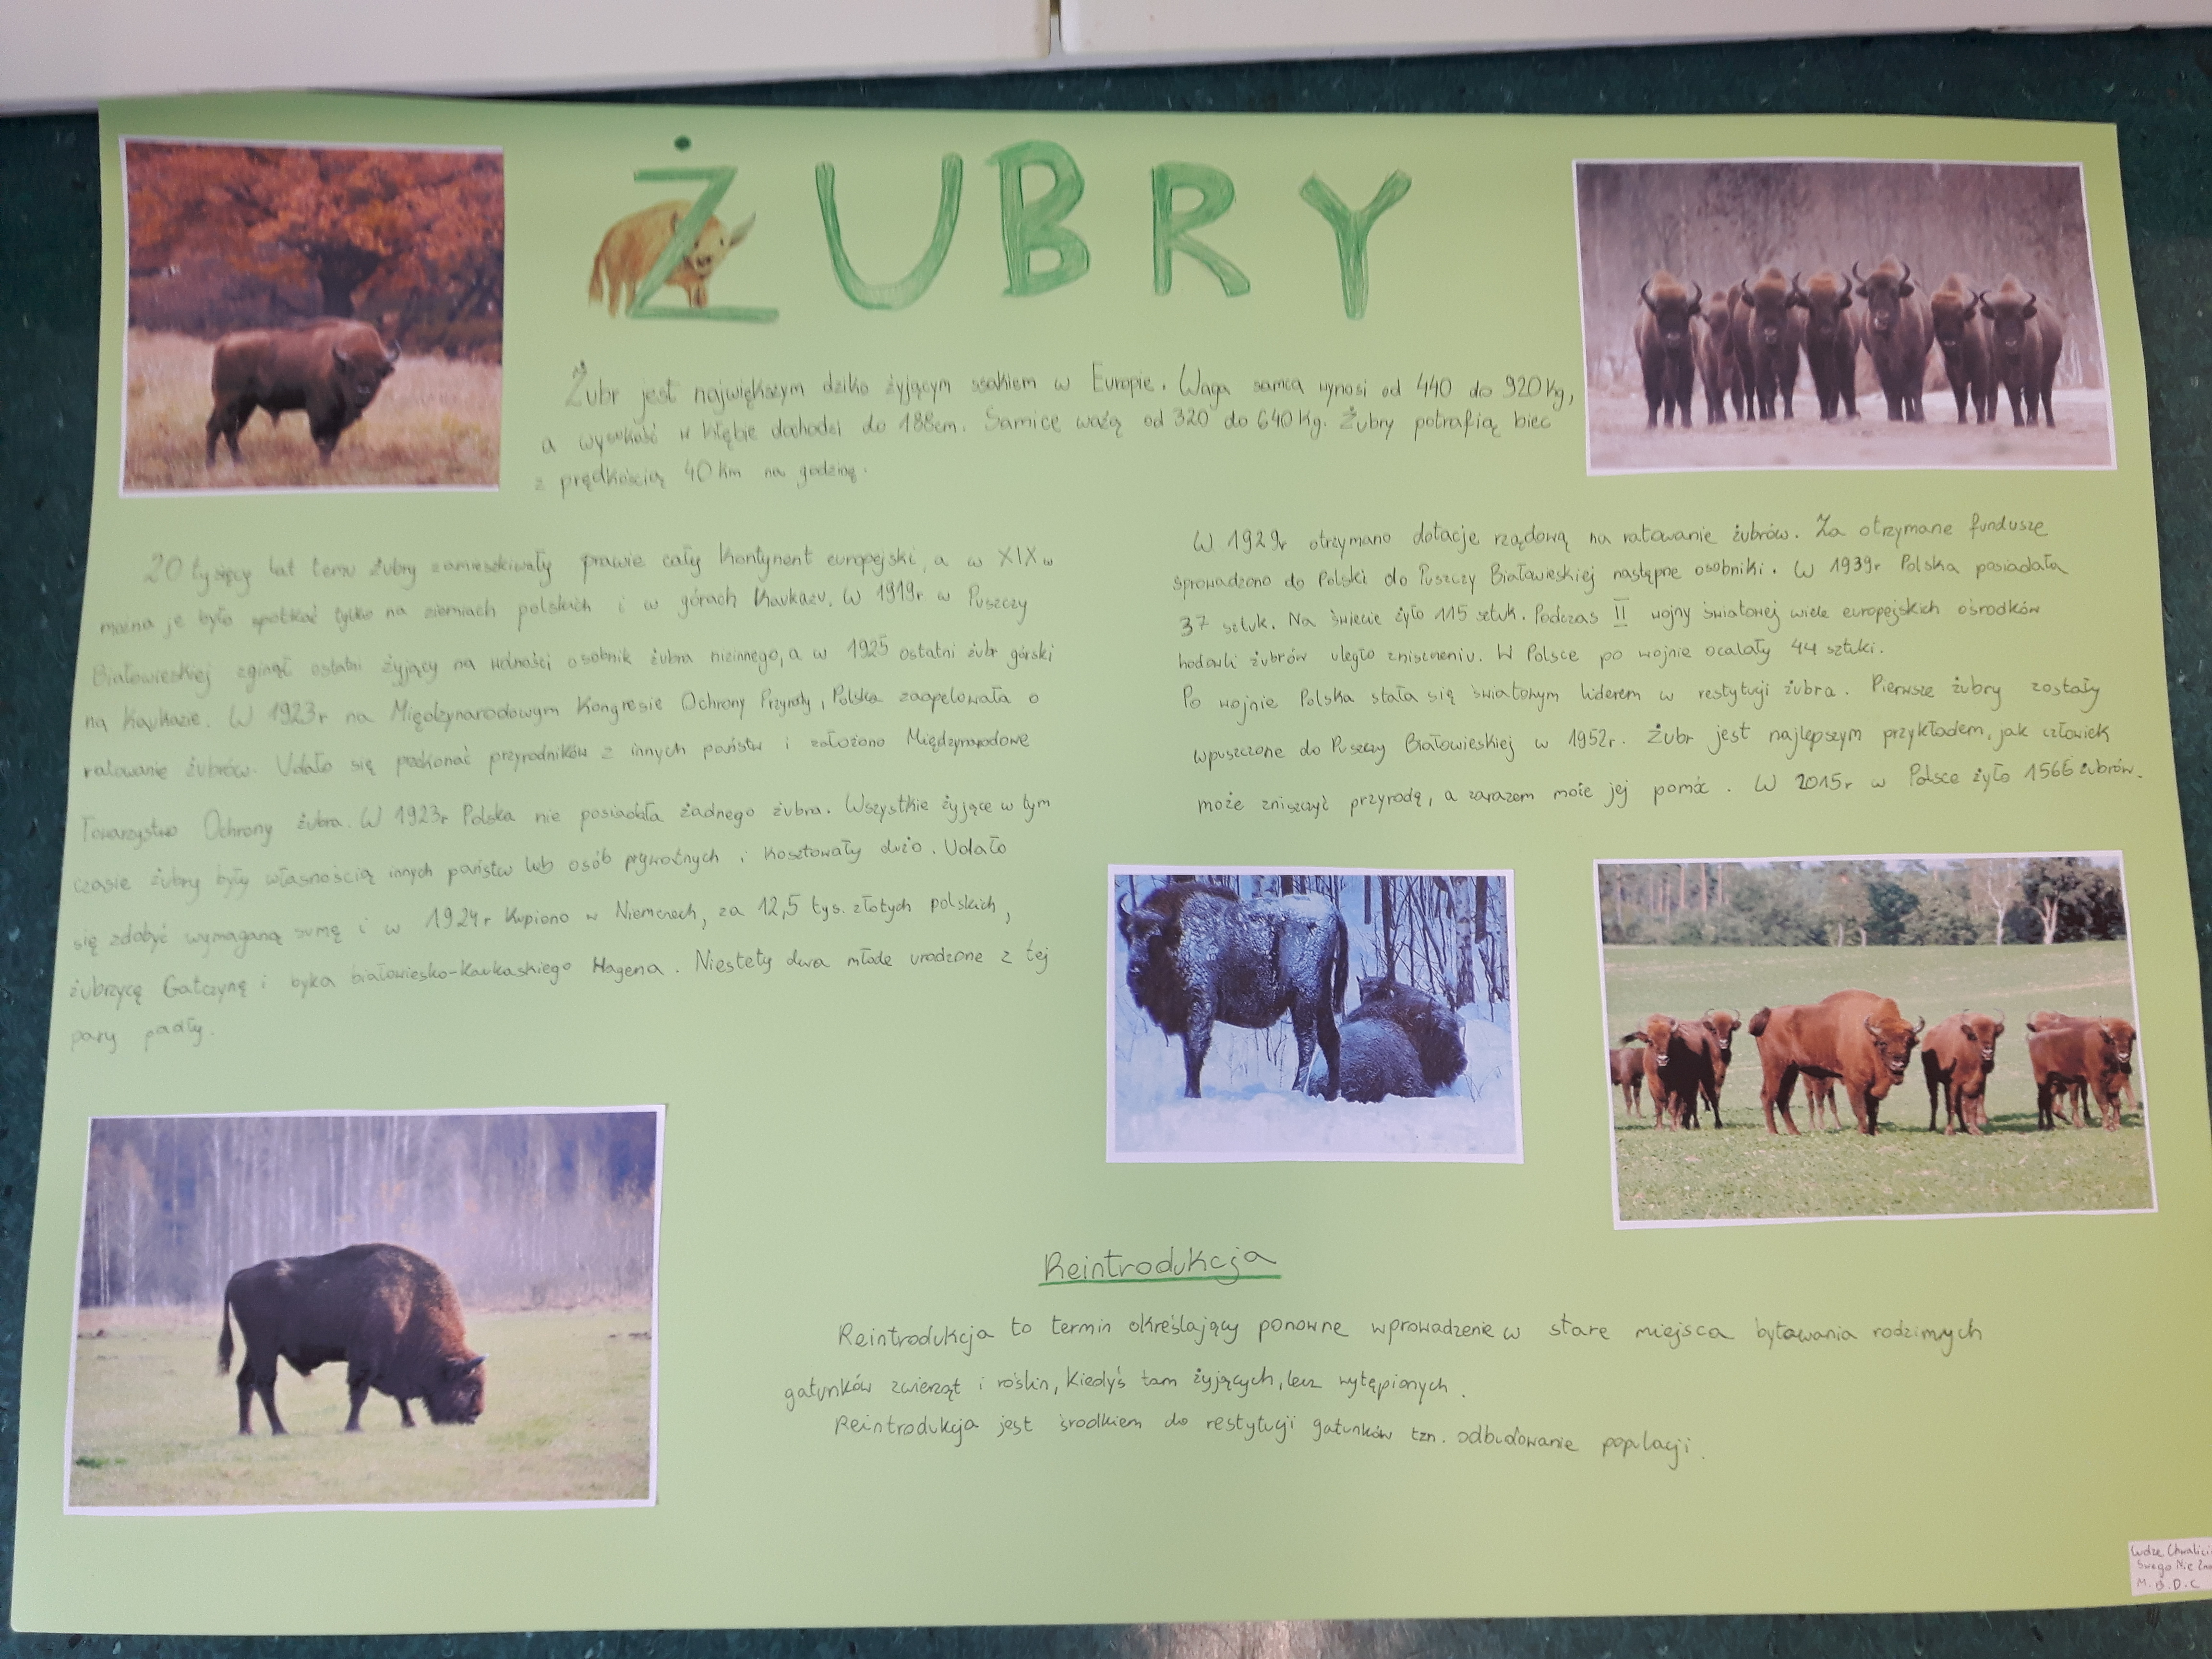 ŻUBRY
Żubr jest największym dziko żyjącym ssakiem w Europie. Waga samca wynosi od 440 do 920 kg,
a wysokość w kłębie dochodzi do 188cm. Samice ważą od 320 do 640 kg. Żubry potrafią biec
z prędkością 40 km na godzinę.
20 tysięcy lat temu żubry zamieszkiwały prawie cały kontynent europejski, a w XIX w
można je było spotkać tylko na ziemiach polskich i w górach Kaukazu. W 1919r w Puszczy
Białowieskiej zginął ostatni żyjący na wolności osobnik żubra nizinnego, a w 1925 ostatni żubr górski
na Kaukazie. W 1923r na Międzynarodowym Kongresie Ochrony Przyrody, Polska zaapelowała o
ratowanie żubrów. Udało się przekonać przyrodników z innych państw i założono Międzynarodowe
Towarzystwo Ochrony żubra. W 1923r Polska nie posiadała żadnego żubra. Wszystkie żyjące w tym
czasie żubry były własnością innych państw lub osób prywatnych i kosztowały dużo. Udało
się zdobyć wymaganą sumę i w 1924r kupiono w Niemczech, za 12,5 tys. złotych polskich,
żubrzycę Gatczynę i byka białowiesko-kaukaskiego Hagena. Niestety dwa młode urodzone z tej
pary padły.
W 1929r otrzymano dotacje rządową na ratowanie żubrów. Za otrzymane fundusze
sprowadzono do Polski do Puszczy Białowieskiej następne osobniki. W 1939r Polska posiadała
37 sztuk. Na świecie żyło 115 sztuk. Podczas II wojny światowej wiele europejskich ośrodków
hodowli żubrów uległo zniszczeniu. W Polsce po wojnie ocalały 44 sztuki.
Po wojnie Polska stała się światowym liderem w restytucji żubra. Pierwsze żubry zostały
wpuszczone do Puszczy Białowieskiej w 1952r. Żubr jest najlepszym przykładem, jak człowiek
może zniszczyć przyrodę, a zarazem może jej pomóc. W 2015r w Polsce żyło 1566 żubrów.
Reintrodukcja
Reintrodukcja to termin określający ponowne wprowadzenie w stare miejsca bytowania rodzimych
gatunków zwierząt i roślin, kiedyś tam żyjących, lecz wytępionych.
Reintrodukcja jest środkiem do restytucji gatunków tzn. odbudowanie populacji.
Cudze
Swego Nie
M.B.D.C